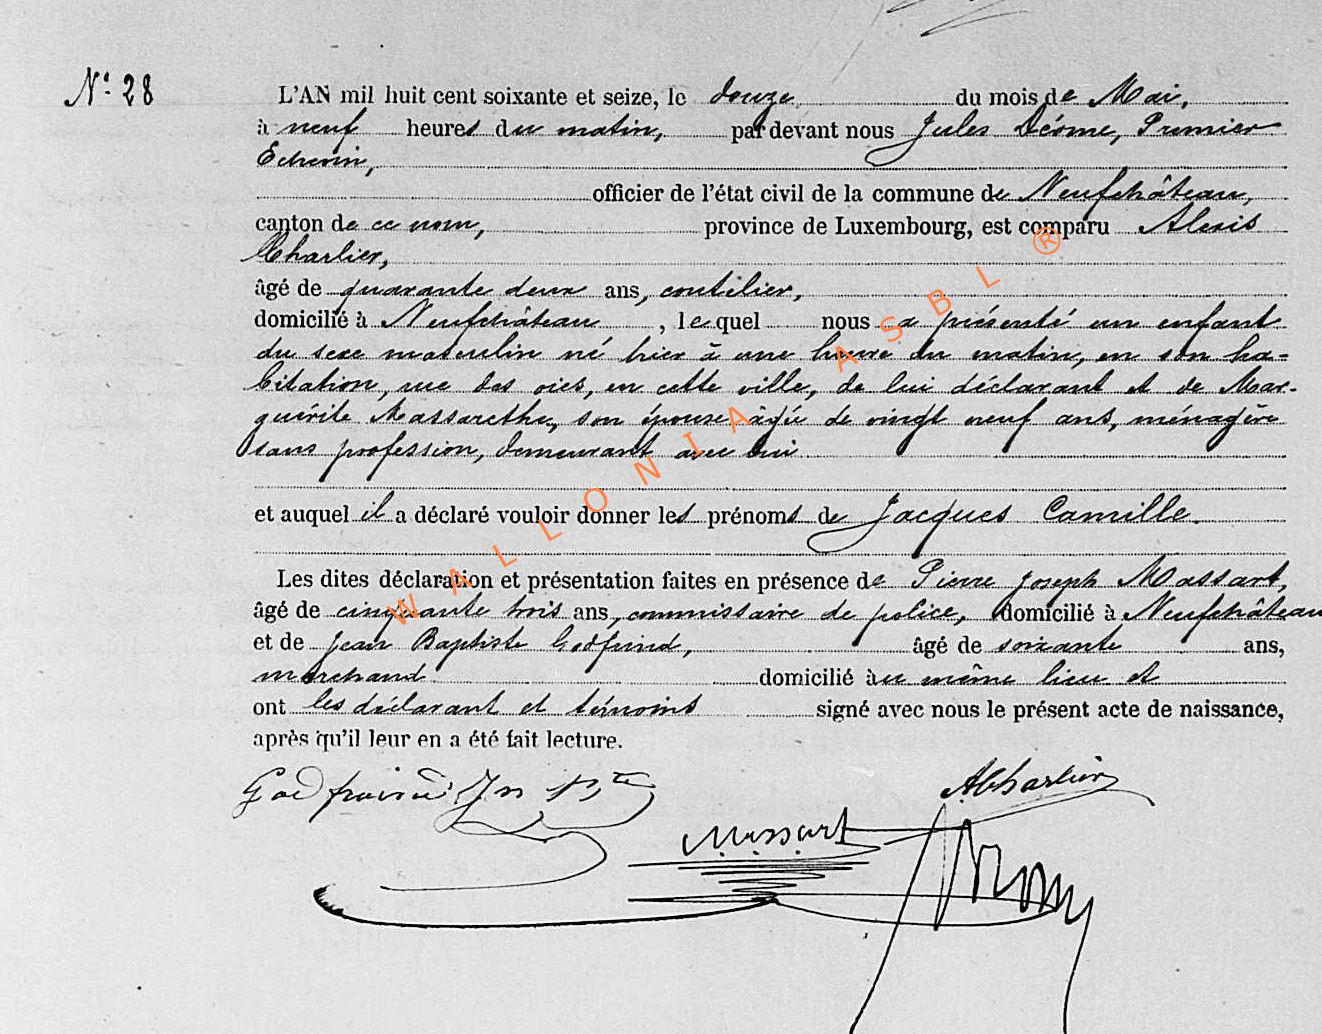 N.° 28
L'AN mil huit cent soixante et seize, le douze du mois de Mai,
à neuf heures du matin, par devant nous Jules Dérome, Premier
Echevin,
officier de l'état civil de la commune de Neufchâteau,
canton de ce nom, province de Luxembourg, est comparu Alexis
Charlier,
âgé de quarante deux ans, coutelier,
domicilié à Neufchâteau, lequel nous a présenté un enfant
du sexe masculin né hier à une heure du matin, en son ha=
bitation, rue des oies, en cette ville, de lui déclarant et de Mar-
guérite Massarethe, son épouse âgée de vingt neuf ans, ménagère
sans profession, demeurant avec lui
et auquel il a déclaré vouloir donner les prénoms de Jacques Camille.
Les dites déclaration et présentation faites en présence de Pierre Joseph Massart,
âgé de cinquante trois ans, commissaire de police, domicilié à Neufchâteau
et de Jean Baptiste Godfrind, âgé de soixante ans,
marchand domicilié au même lieu et
ont les déclarant et témoins signé avec nous le présent acte de naissance,
après qu'il leur en a été fait lecture.
ACharlier
Massart
WALLONIA ASBL ®